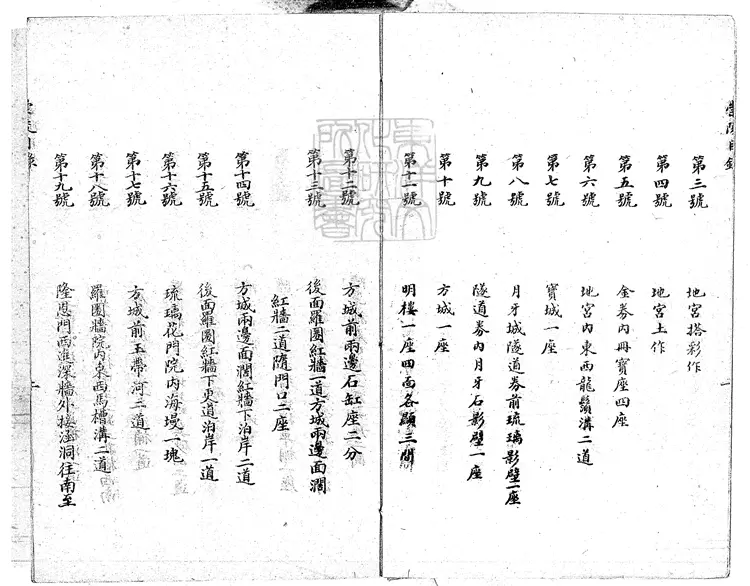 崇陵目錄
第三號 地宮搭彩作
第四號 地宮土作
第五號 金券內冊寶座四座
第六號 地宮內東西龍鬚溝二道
第七號 寶城一座
第八號 月牙城隧道券前琉璃影壁一座
第九號 隧道券內月牙石影壁一座
第十號 方城一座
第十一號 明樓一座四面各顯三間
一
第十二號 方城前兩邊石缸座二分
第十三號 後面羅圈紅牆一道方城兩邊面濶
紅牆二道隨門口二座
第十四號 方城兩邊面濶紅牆下泊岸二道
第十五號 後面羅圈紅牆下更道泊岸一道
第十六號 琉璃花門院內海墁一塊
第十七號 方城前玉帶河二道
第十八號 羅圈牆院內東西馬槽溝二道
第十九號 隆恩門西進深牆外接涵洞往南至
二